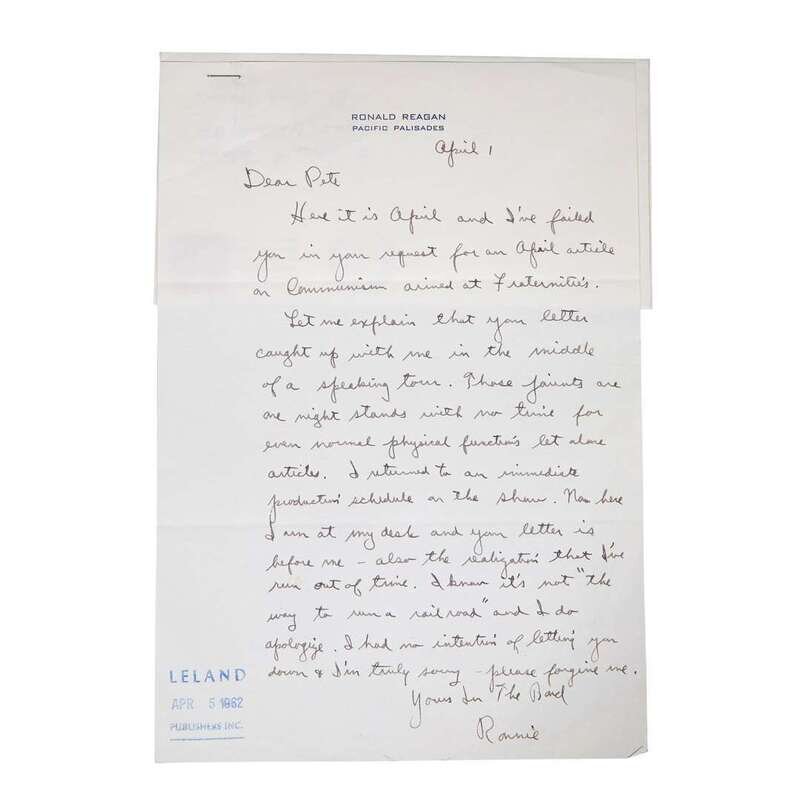 RONALD REAGAN
PACIFIC PALISADES
April 1
Dear Pete
Here it is April and I've failed
you in your request for an April article
on Communism aimed at Fraternities.
Let me explain that your letter
caught up with me in the middle
of a speaking tour. Those jaunts are
one night stands with no time for
even normal physical functions let alone
articles. I returned to an immediate
production schedule on the show. Now here
I am at my desk and your letter is
before me – also the realization that I've
run out of time. I know it's not "the
way to run a railroad" and I do
apologize. I had no intention of letting you
down & I'm truly sorry – please forgive me.
Yours In The Bond
Ronnie
LELAND
APR 5 1962
PUBLISHERS INC.